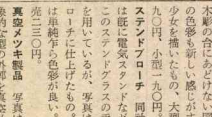 木彫の台にあどけない
の色彩も新しい感じがす
少女を描いたもの、大型
九〇円、小型一九〇円。
ステンドブローチ 同
は既に電気スタンドな
このステンドグラスの
を用いているが、写真は
ローチに仕上げたもの。
は単純乍ら色彩が良い。
売二三〇円。
真空メツキ製品 写真